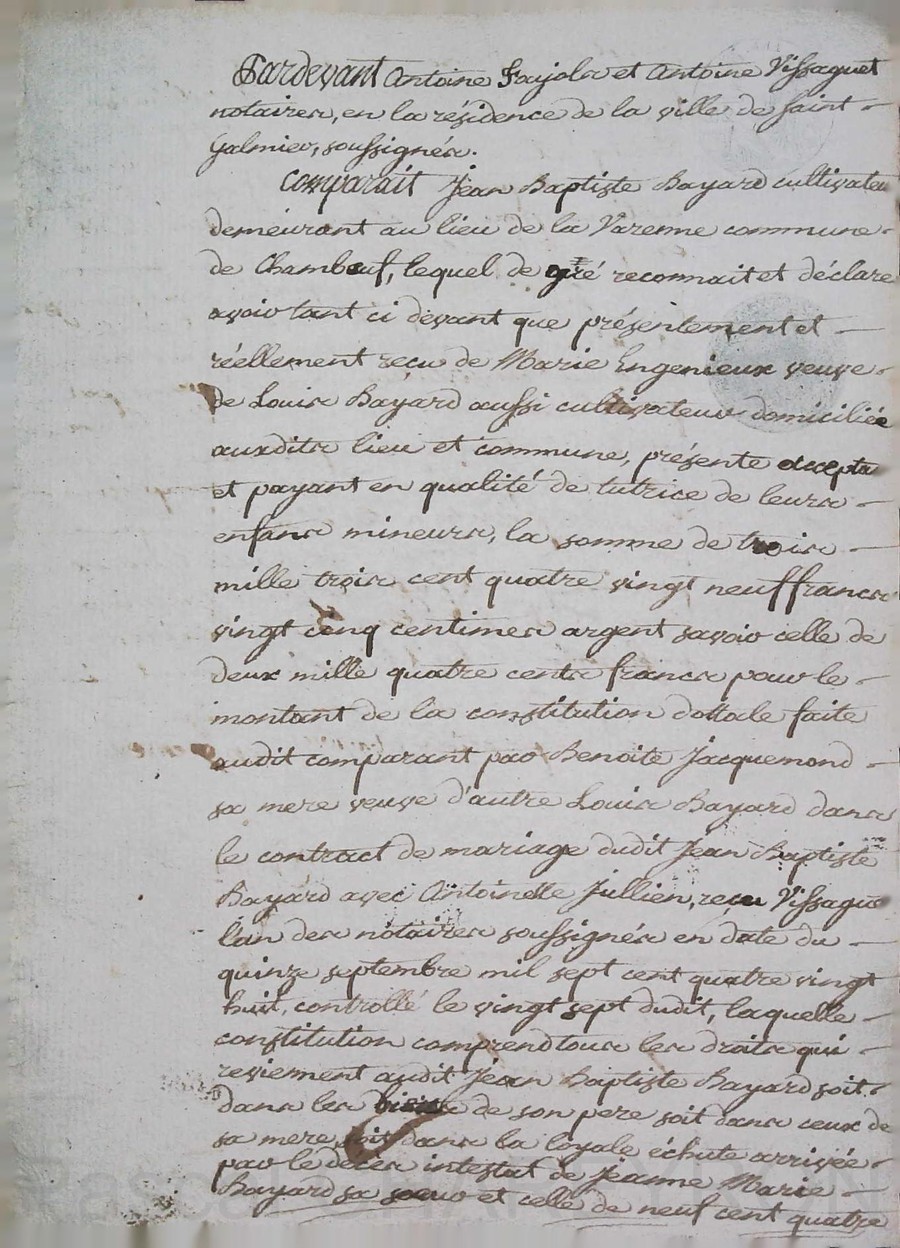 Pardevant Antoine Fajole et Antoine Vissaguet
notaires, en la résidence de la ville de Saint
Galmier, soussignés.
Comparait Jean Baptiste Bayard cultivateu
demeurant au lieu de la Varenne commune
de Chambœuf, lequel de gré reconnait et déclare
avoir tant ci devant que présentement et
réellement reçu de Marie Engenieux veuve
de Louis Bayard aussi cultivateur domiciliée
auxdits lieu et commune, présente accepta
et payant en qualité de tutrice de leurs
enfans mineurs, la somme de trois
mille trois cent quatre vingt neuf francs
vingt cinq centimes argent savoir celle de
deux mille quatre cents francs pour le
montant de la constitution dottale faite
audit comparant par Benoite Jacquemond
sa mere veuve d'autre Louis Bayard dans
le contract de mariage dudit Jean Baptiste
Bayard avec Antoinette Jullien, reçu Vissague
l'un des notaires soussignés en date du
quinze septembre mil sept cent quatre vingt
huit, controllé le vingt sept dudit, laquelle
constitution comprend tous les droits qui
reviennent audit Jean Baptiste Bayard soit
dans les biens de son pere soit dans ceux de
sa mere, soit dans la loyale échute arrivée
par le décès intestat de Jeanne Marie
Bayard sa sœur et celle de neuf cent quatre